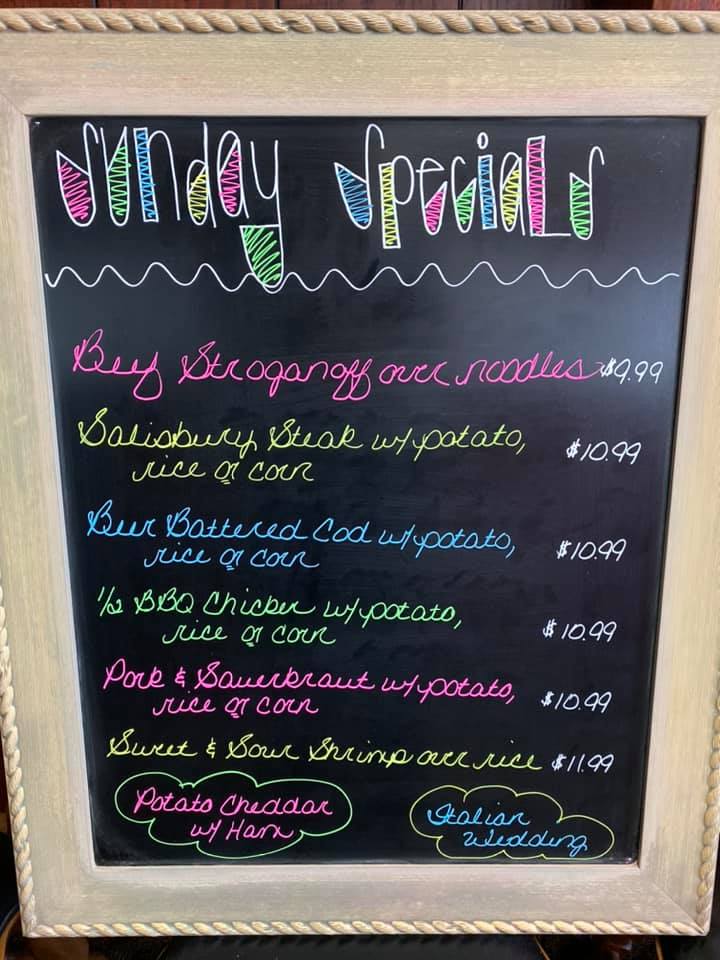 Sunday Specials
Beef Stroganoff over noodles $9.99
Salisbury Steak w/potato, $10.99
rice or corn
Beer Battered Cod w/potato, $10.99
rice or corn
1/2 BBQ Chicken w/potato, $10.99
rice or corn
Pork & Sauerkraut w/potato, $10.99
rice or corn
Sweet & Sour Shrimp over rice $11.99
Potato Cheddar
w/ Ham
Italian
Wedding